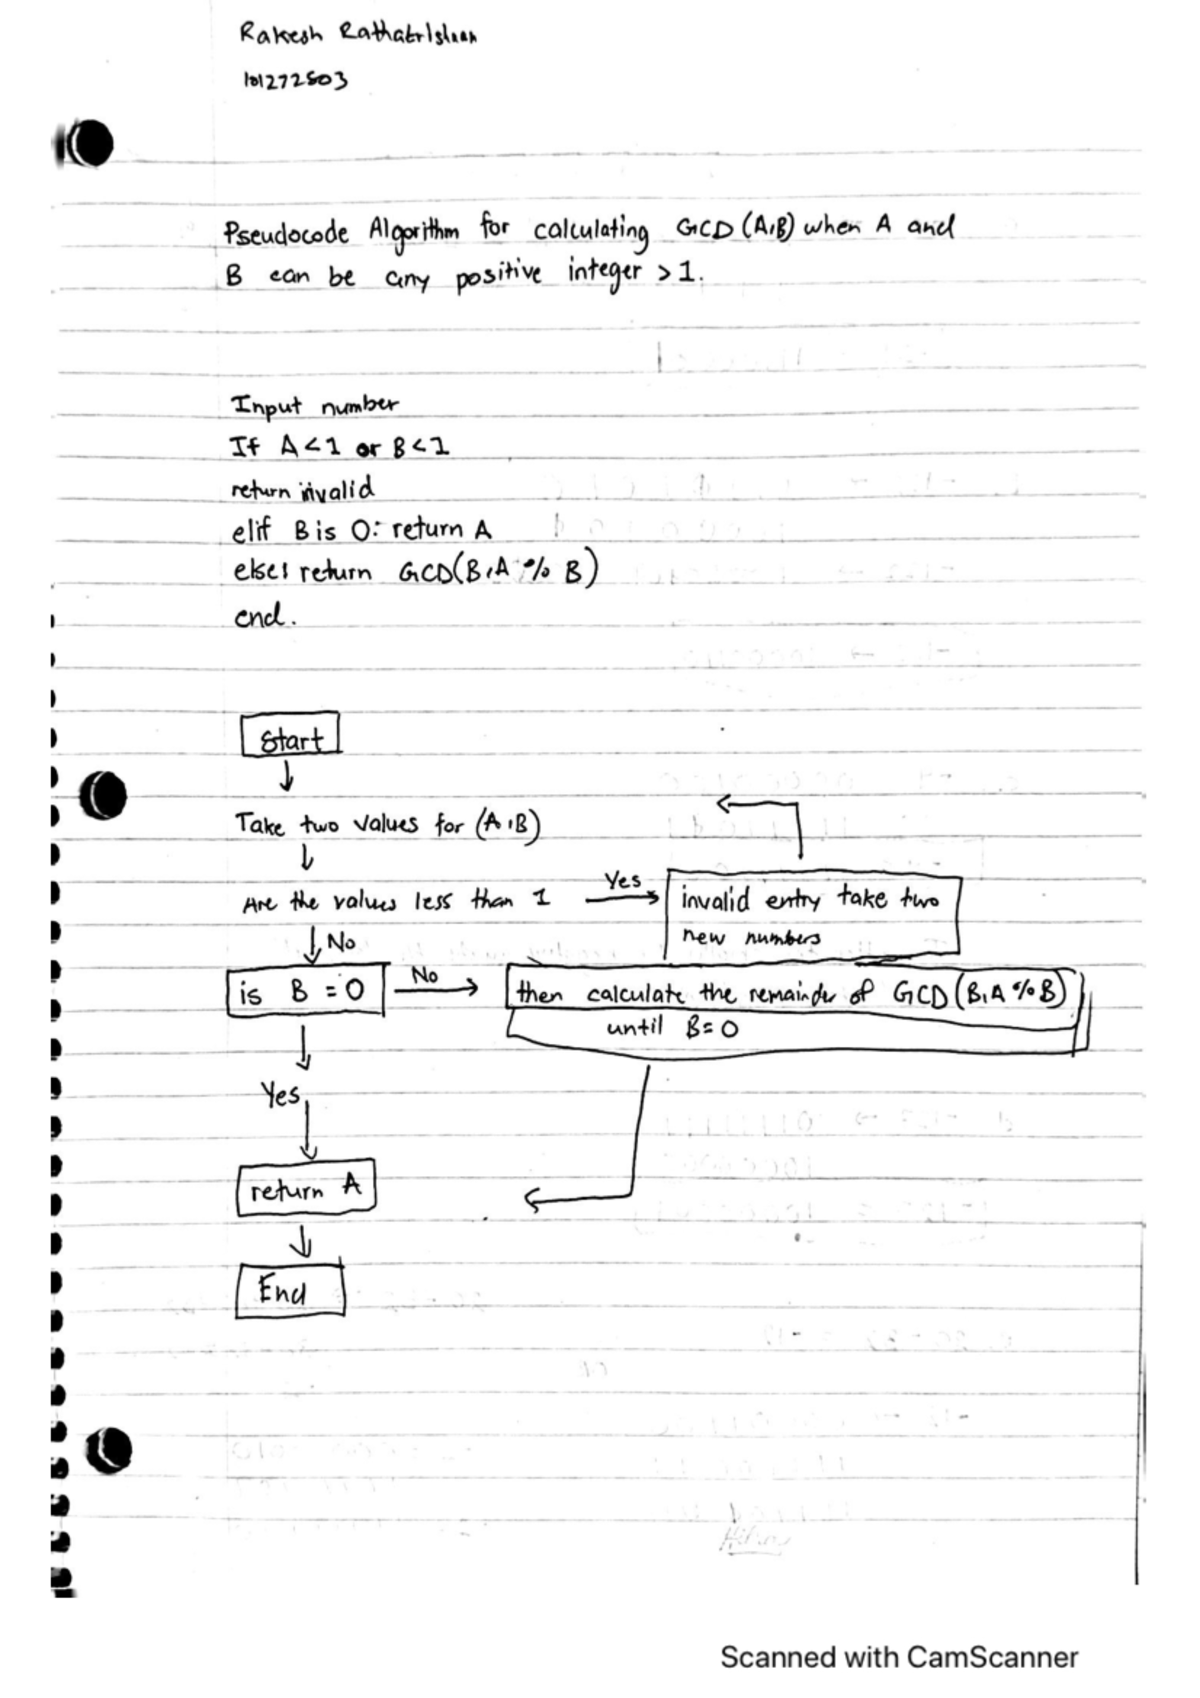 Rakesh
101272503
Pseudocode Algorithm for calculating GCD (A,B) when A and
B can be any positive integer > 1.
Input number
If A < 1 or B < 1
return invalid
elif B is 0: return A
else: return GCD(B,A % B)
end.
Start
Take two values for (A,B)
Are the values less than 1
Yes
invalid entry take two
new numbers
No
is B = 0
No
then calculate the remainder of GCD (B,A % B)
until B = 0
Yes
return A
End
Scanned with CamScanner